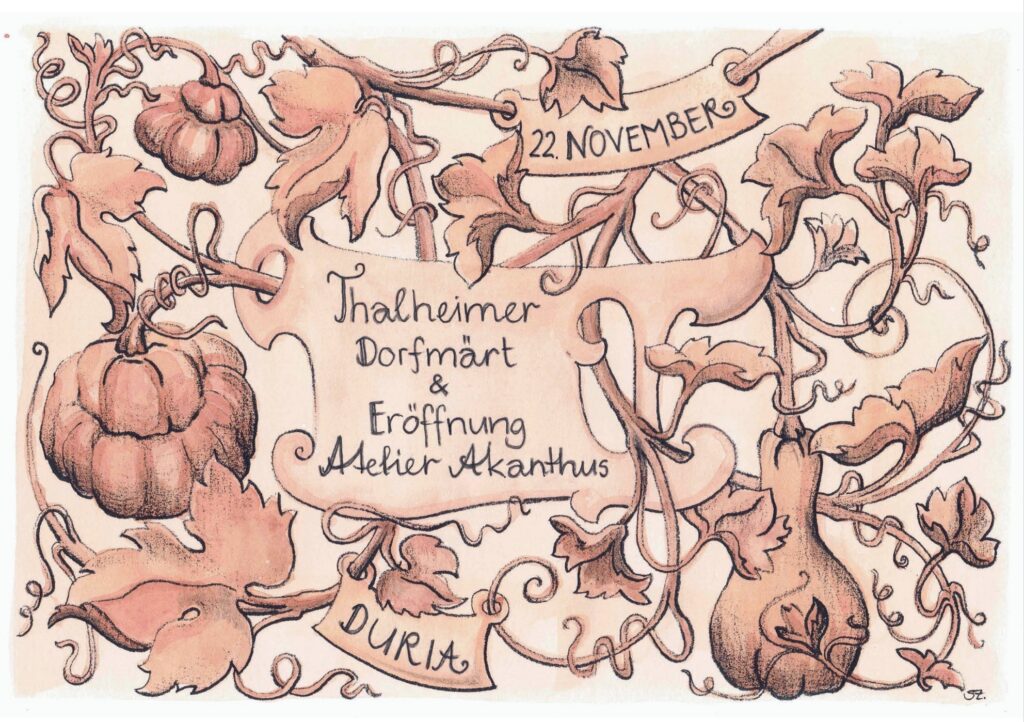 22. NOVEMBER
Thalheimer
Dorfmärt
&
Eröffnung
Atelier Akanthus
DURIA
SZ.